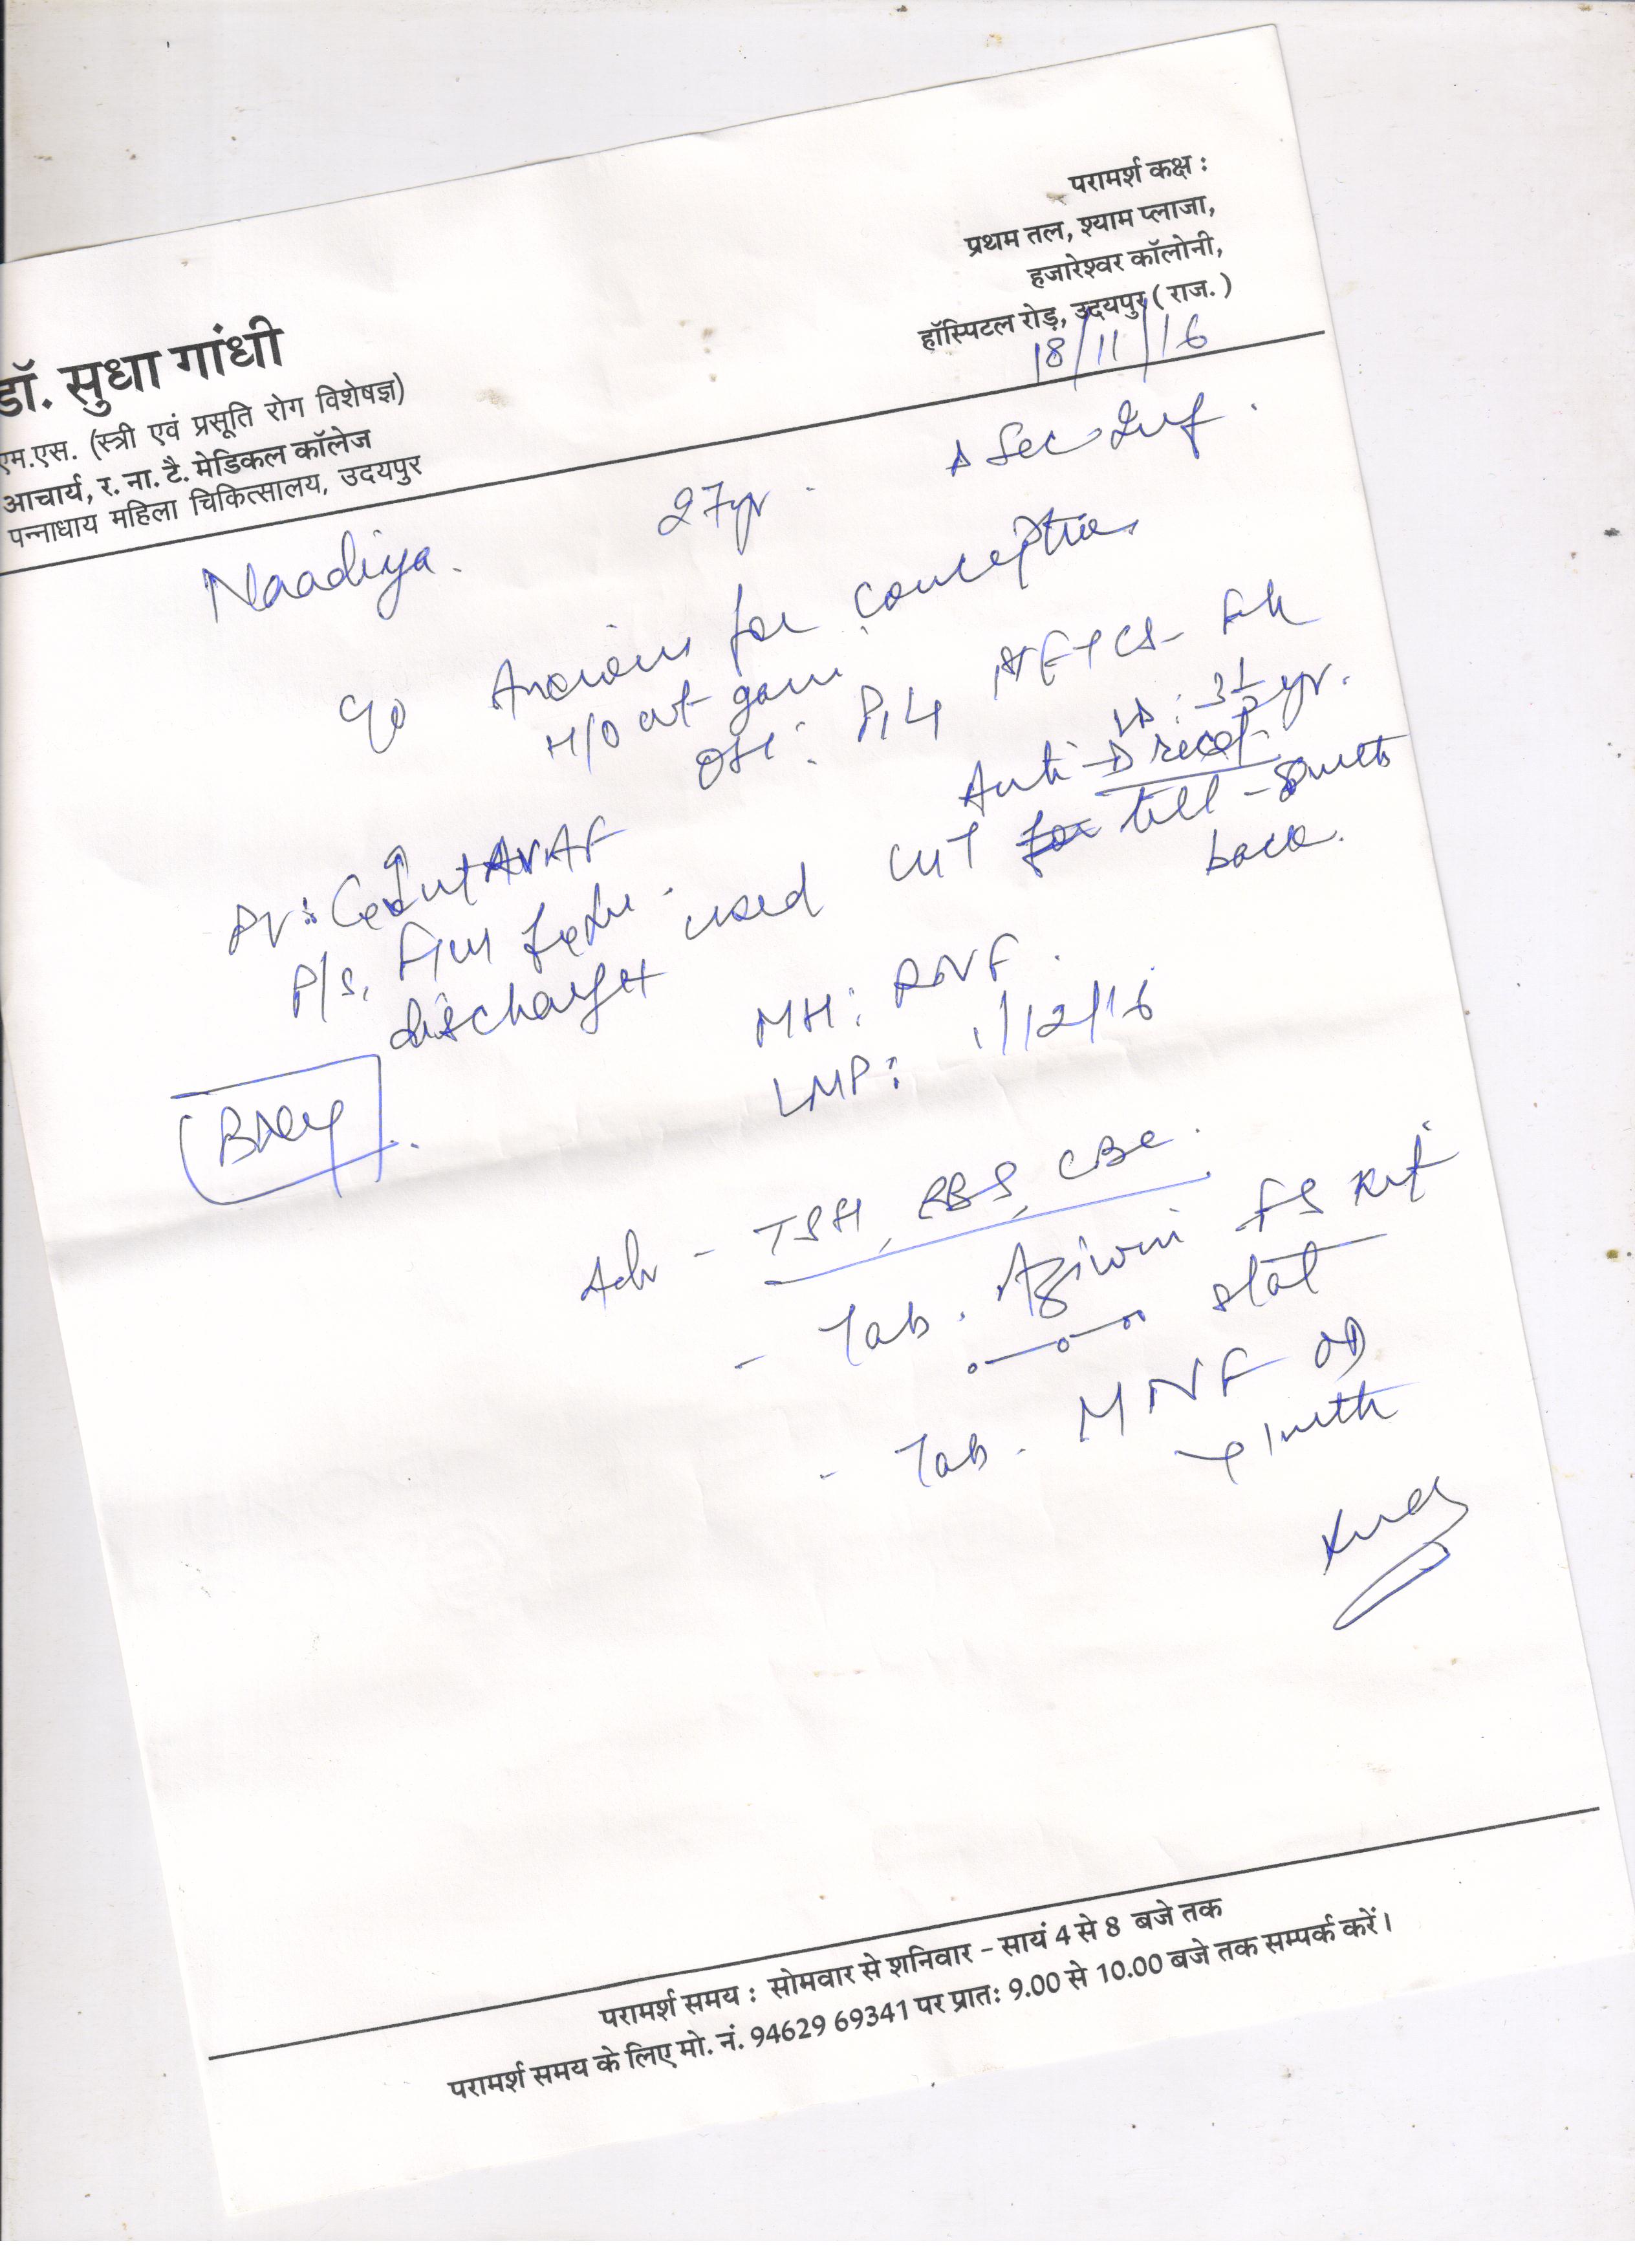 परामर्श कक्ष :
प्रथम तल, श्याम प्लाजा,
हजारेश्वर कॉलोनी,
हॉस्पिटल रोड़, उदयपुर ( राज. )
18/11/16
डॉ. सुधा गांधी
एम.एस. (स्त्री एवं प्रसूति रोग विशेषज्ञ)
आचार्य, र. ना. टै. मेडिकल कॉलेज
पन्नाधाय महिला चिकित्सालय, उदयपुर
Naadiya. 27yr. Δ Sec Inf.
c/o Anxious for conception
H/O wt gain
OH: P1L1 FTCS-
LD: 3 1/2 yr.
Anti-D recd
PV: Cx Ut AVAF
P/S.
discharge+
used CuT for till - 8mth
back.
MH: RNF.
LMP: 1/12/16
Adv - TSH, RBS, CBC.
- Tab. Aziwin FS Kit
stat
- Tab. MNF OD
x 1mth
परामर्श समय : सोमवार से शनिवार - सायं 4 से 8 बजे तक
परामर्श समय के लिए मो. नं. 94629 69341 पर प्रातः 9.00 से 10.00 बजे तक सम्पर्क करें।